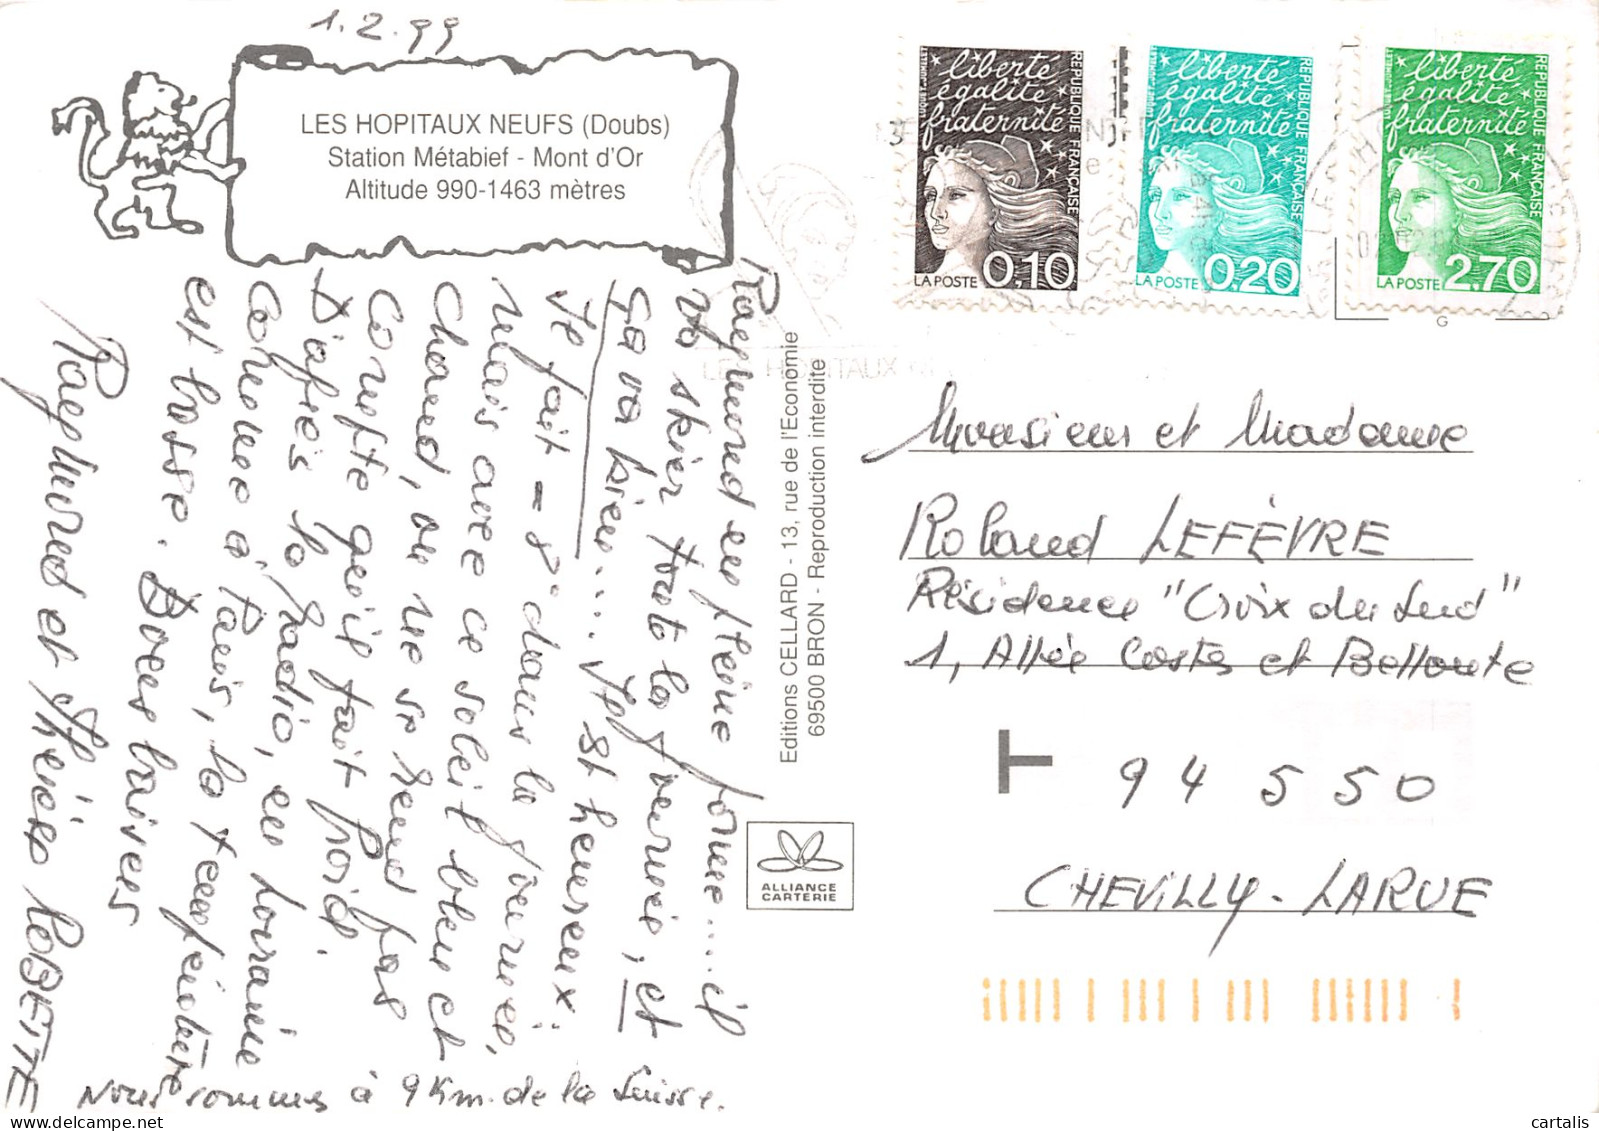 1.2.99
LES HOPITAUX NEUFS (Doubs)
Station Métabief - Mont d'Or
Altitude 990-1463 mètres
Raymond en pleine forme.....il
va skier toute la journée, et
ça va bien.... Il est heureux.
Il fait - 8° dans la journée,
mais avec ce soleil bleu et
chaud, on ne se rend pas
compte qu'il fait froid.
D'après la radio, en Lorraine
comme à Paris, la température
est basse. Bons baisers
Raymond et Thérèse ROBETTE
Nous sommes à 9 Km. de la Suisse.
Editions CELLARD - 13, rue de l'Economie
69500 BRON - Reproduction interdite
ALLIANCE
CARTERIE
liberté
égalité
fraternité
REPUBLIQUE FRANÇAISE
LA POSTE 0,10
liberté
égalité
fraternité
REPUBLIQUE FRANÇAISE
LA POSTE 0,20
liberté
égalité
fraternité
REPUBLIQUE FRANÇAISE
LA POSTE 2,70
G
LES HOPITAUX
Monsieur et Madame
Roland LEFÈVRE
Résidence "Croix du Sud"
1, Allée Costes et Bellonte
T
94 550
CHEVILLY-LARUE
cartalis